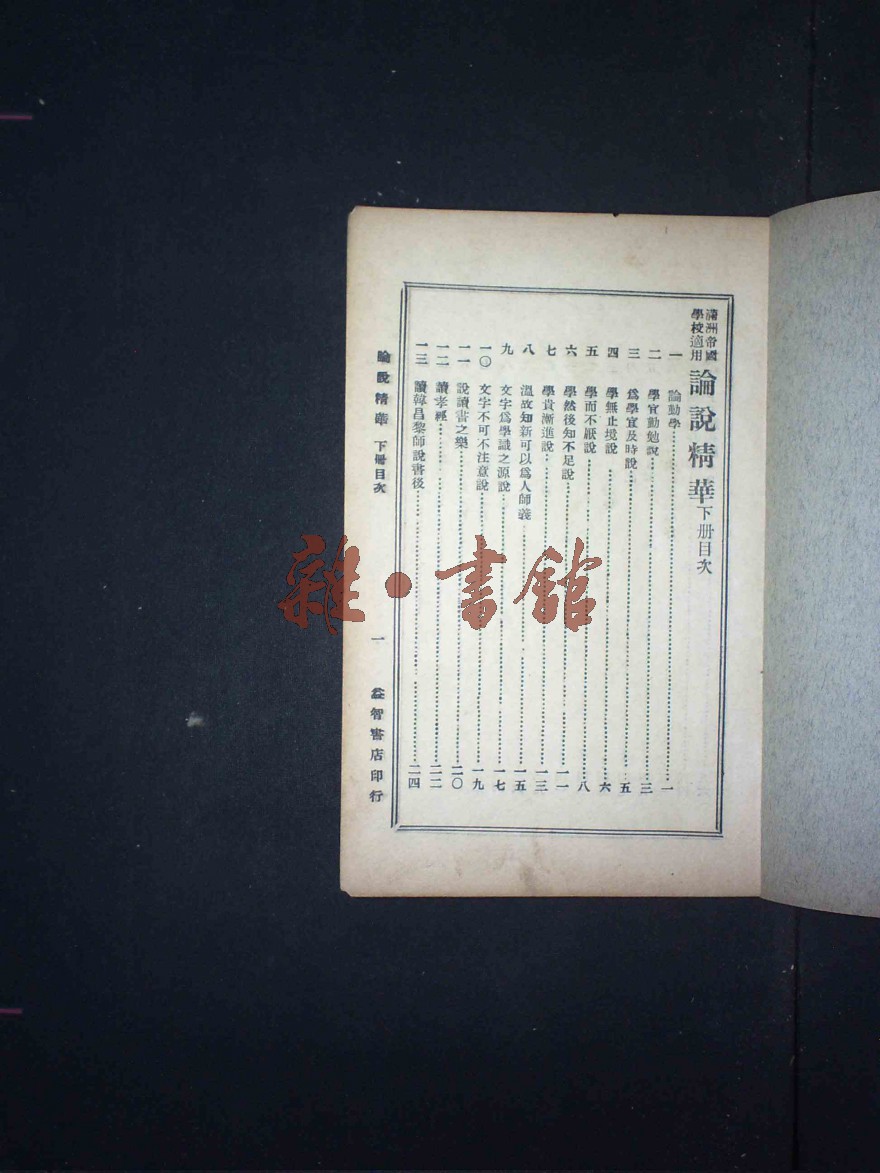 滿洲帝國
學校適用
論說精華下册目次
一 論勤學 一
二 學宜勤勉說 三
三 爲學宜及時說 五
四 學無止境說 六
五 學而不厭說 八
六 學然後知不足說 一一
七 學貴漸進說 一三
八 溫故知新可以爲人師義 一五
九 文字爲學識之源說 一七
一〇 文字不可不注意說 一九
一一 說讀書之樂 二〇
一二 讀孝經 二二
一三 讀韓昌黎師說書後 二四
論說精華 下册目次 一 益智書店印行
雜·書館